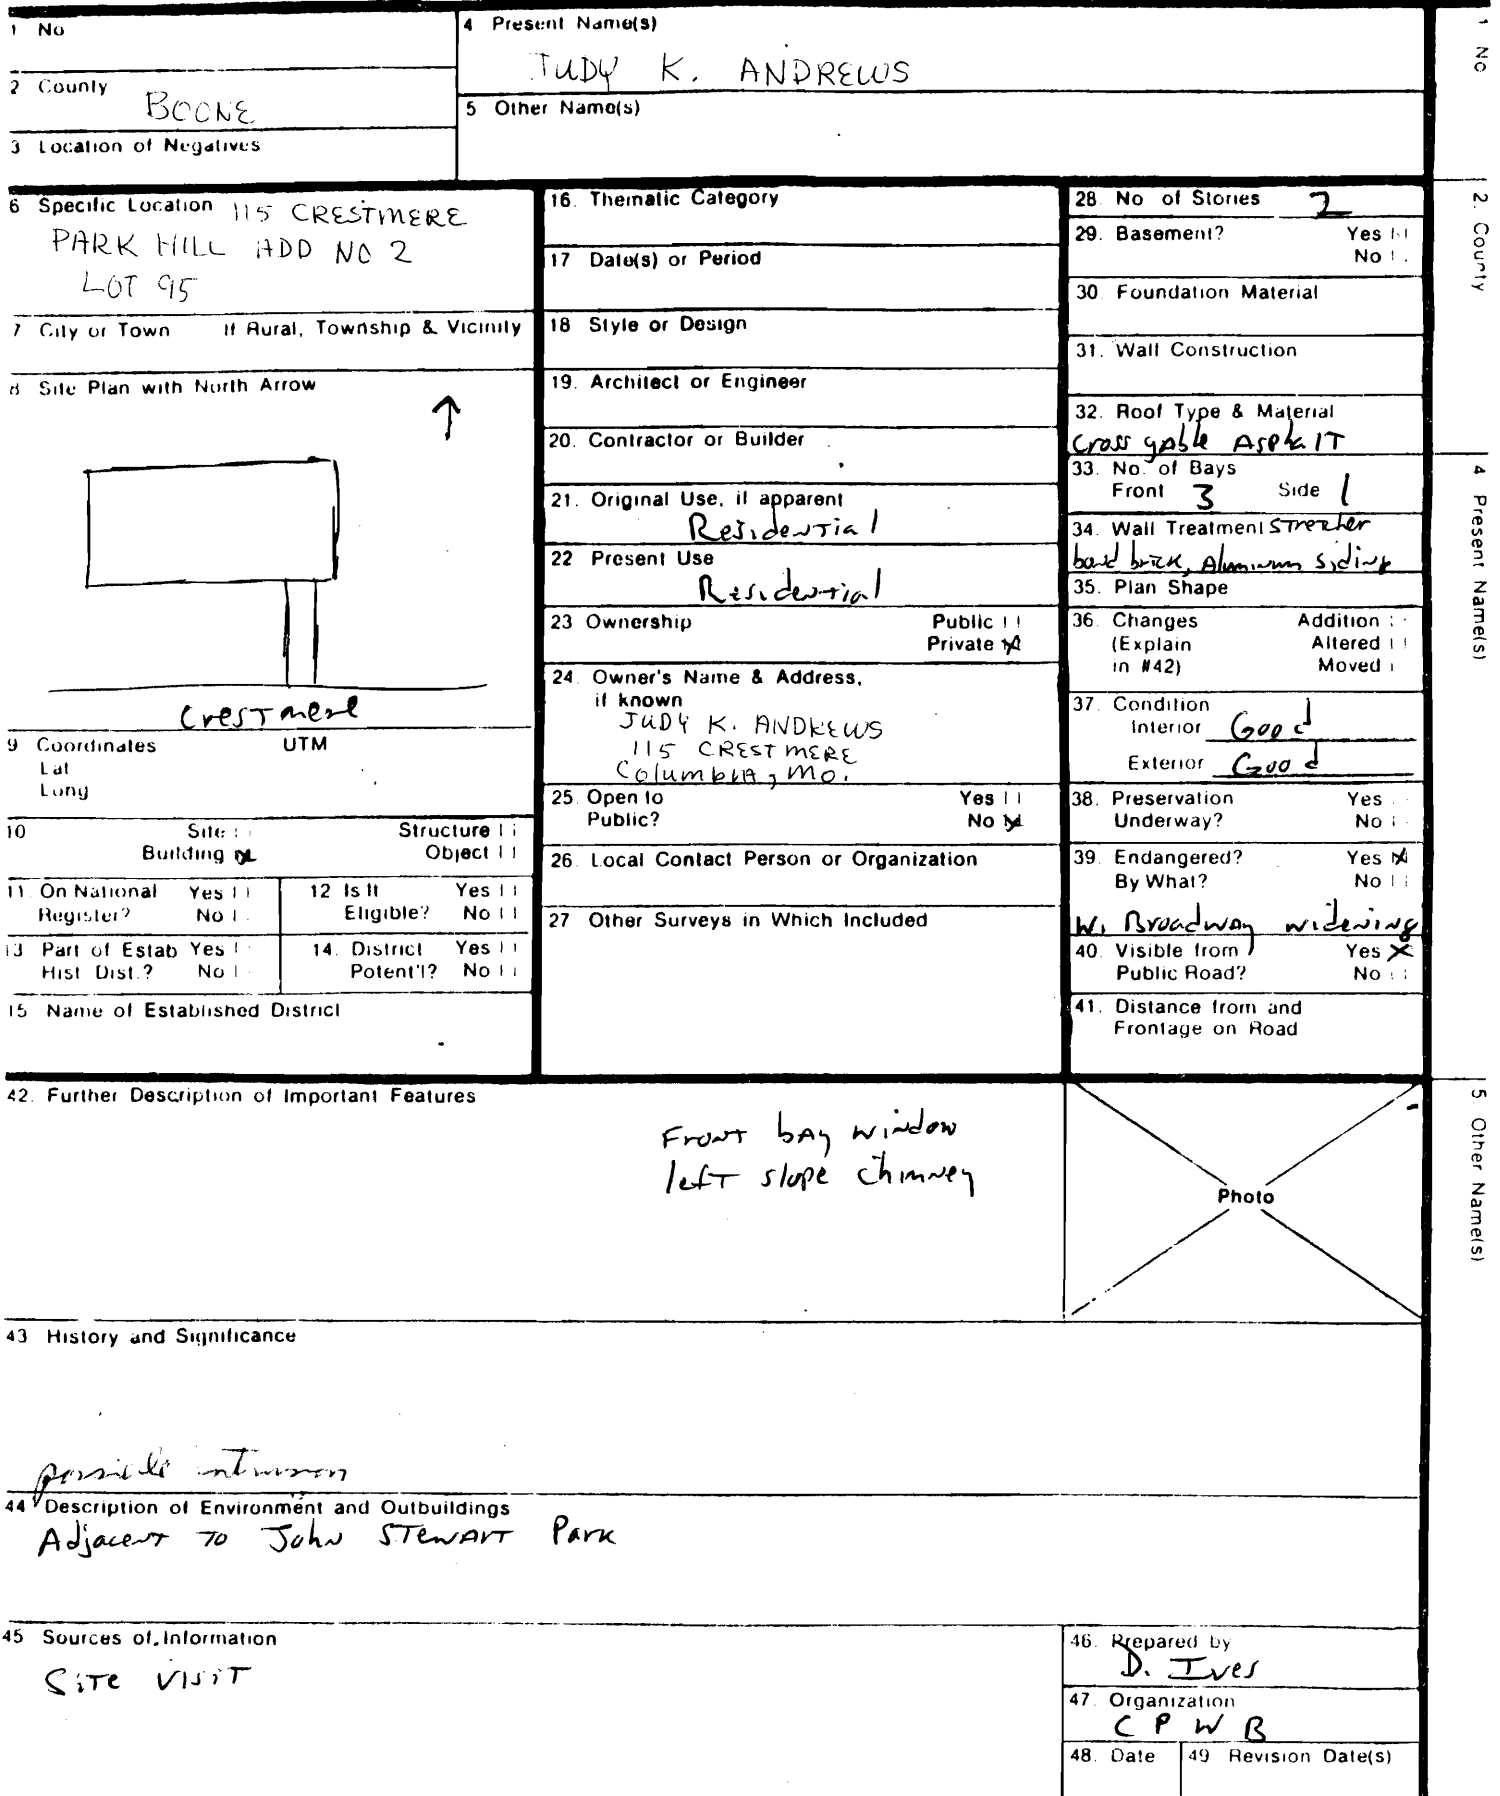 1 No
2 County
BOONE
3 Location of Negatives
4 Present Name(s)
JUDY K. ANDREWS
5 Other Name(s)
6 Specific Location 115 CRESTMERE
PARK HILL ADD NO 2
LOT 95
7 City or Town If Rural, Township & Vicinity
8 Site Plan with North Arrow
Crestmere
9 Coordinates UTM
Lat
Long
10 Site Structure
Building Object
11. On National Register? Yes No
12 Is It Eligible? Yes No
13 Part of Estab Hist Dist.? Yes No
14. District Potent'l? Yes No
15 Name of Established District
16. Thematic Category
17 Date(s) or Period
18 Style or Design
19. Architect or Engineer
20. Contractor or Builder
21. Original Use, if apparent
Residential
22 Present Use
Residential
23 Ownership Public
Private X
24. Owner's Name & Address,
if known
JUDY K. ANDREWS
115 CRESTMERE
Columbia, Mo.
25. Open to Yes
Public? No X
26. Local Contact Person or Organization
27 Other Surveys in Which Included
28. No of Stories 2
29. Basement? Yes
No
30. Foundation Material
31. Wall Construction
32. Roof Type & Material
Cross gable Asphalt
33. No. of Bays
Front 3 Side 1
34. Wall Treatment Stretcher
bond brick, Aluminum Siding
35. Plan Shape
36. Changes Addition
(Explain Altered
in #42) Moved
37. Condition
Interior Good
Exterior Good
38. Preservation Yes
Underway? No
39. Endangered? Yes X
By What? No
W. Broadway widening
40. Visible from Yes X
Public Road? No
41. Distance from and
Frontage on Road
42. Further Description of Important Features
Front bay window
left slope chimney
Photo
43 History and Significance
possible intrusion
44 Description of Environment and Outbuildings
Adjacent to John Stewart Park
45 Sources of Information
Site visit
46. Prepared by
D. Ives
47. Organization
C P W B
48. Date 49 Revision Date(s)
1 No
2. County
4 Present Name(s)
5. Other Name(s)